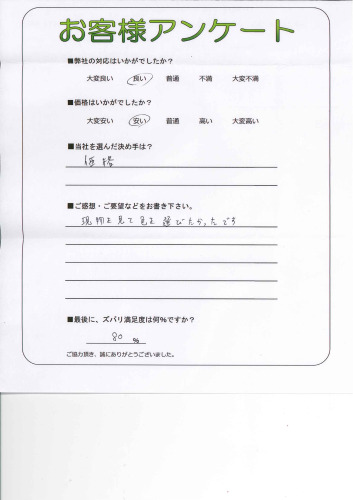 お客様アンケート
■弊社の対応はいかがでしたか？
大変良い 良い 普通 不満 大変不満
■価格はいかがでしたか？
大変安い 安い 普通 高い 大変高い
■当社を選んだ決め手は？
価格
■ご感想・ご要望などをお書き下さい。
現物を見て色を選びたかったです
■最後に、ズバリ満足度は何％ですか？
80 %
ご協力頂き、誠にありがとうございました。